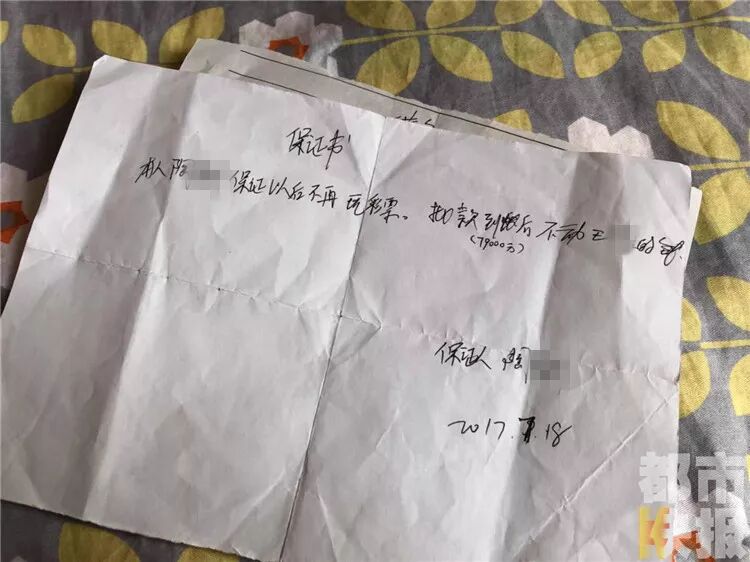 保证书
本人陶 保证以后不再玩彩票。 款到账后不动王 的钱.
(79000元)
保证人 陶
2017. .18
都市
快报